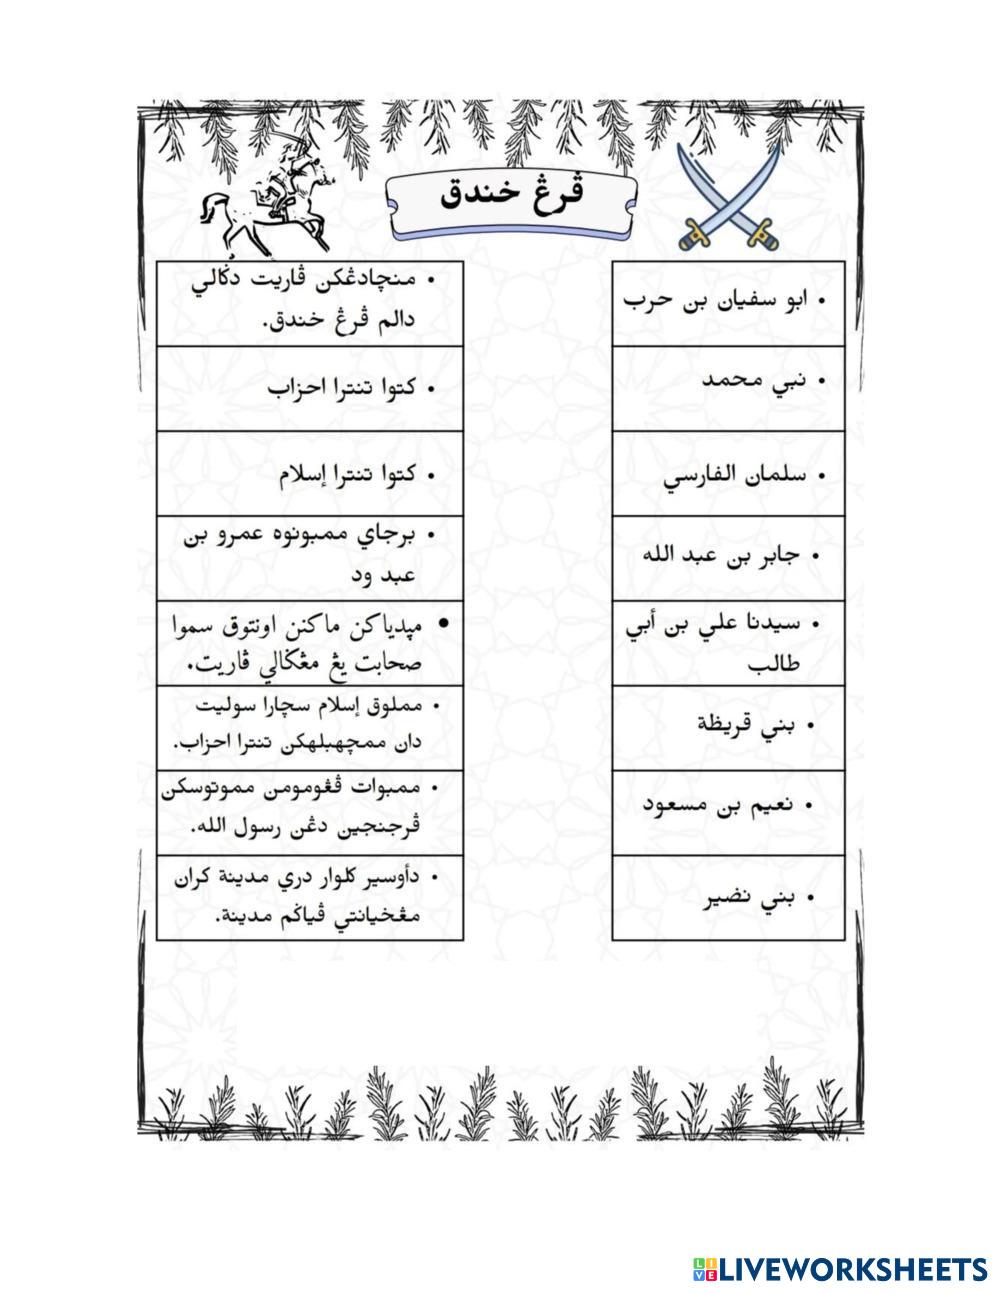 ڤرڠ خندق
• ابو سفيان بن حرب
• نبي محمد
• سلمان الفارسي
• جابر بن عبد الله
• سيدنا علي بن أبي
طالب
• بني قريظة
• نعيم بن مسعود
• بني نضير
• منچادڠكن ڤاريت دݢالي
دالم ڤرڠ خندق.
• كتوا تنترا احزاب
• كتوا تنترا إسلام
• برجاي ممبونوه عمرو بن
عبد ود
• مڽدياكن ماكنن اونتوق سموا
صحابت يڠ مڠݢالي ڤاريت.
• مملوق إسلام سچارا سوليت
دان ممچهبلهكن تنترا احزاب.
• ممبوات ڤڠومومن مموتوسكن
ڤرجنجين دڠن رسول الله.
• دأوسير كلوار دري مدينة كران
مڠخيانتي ڤياݢم مدينة.
LIVEWORKSHEETS